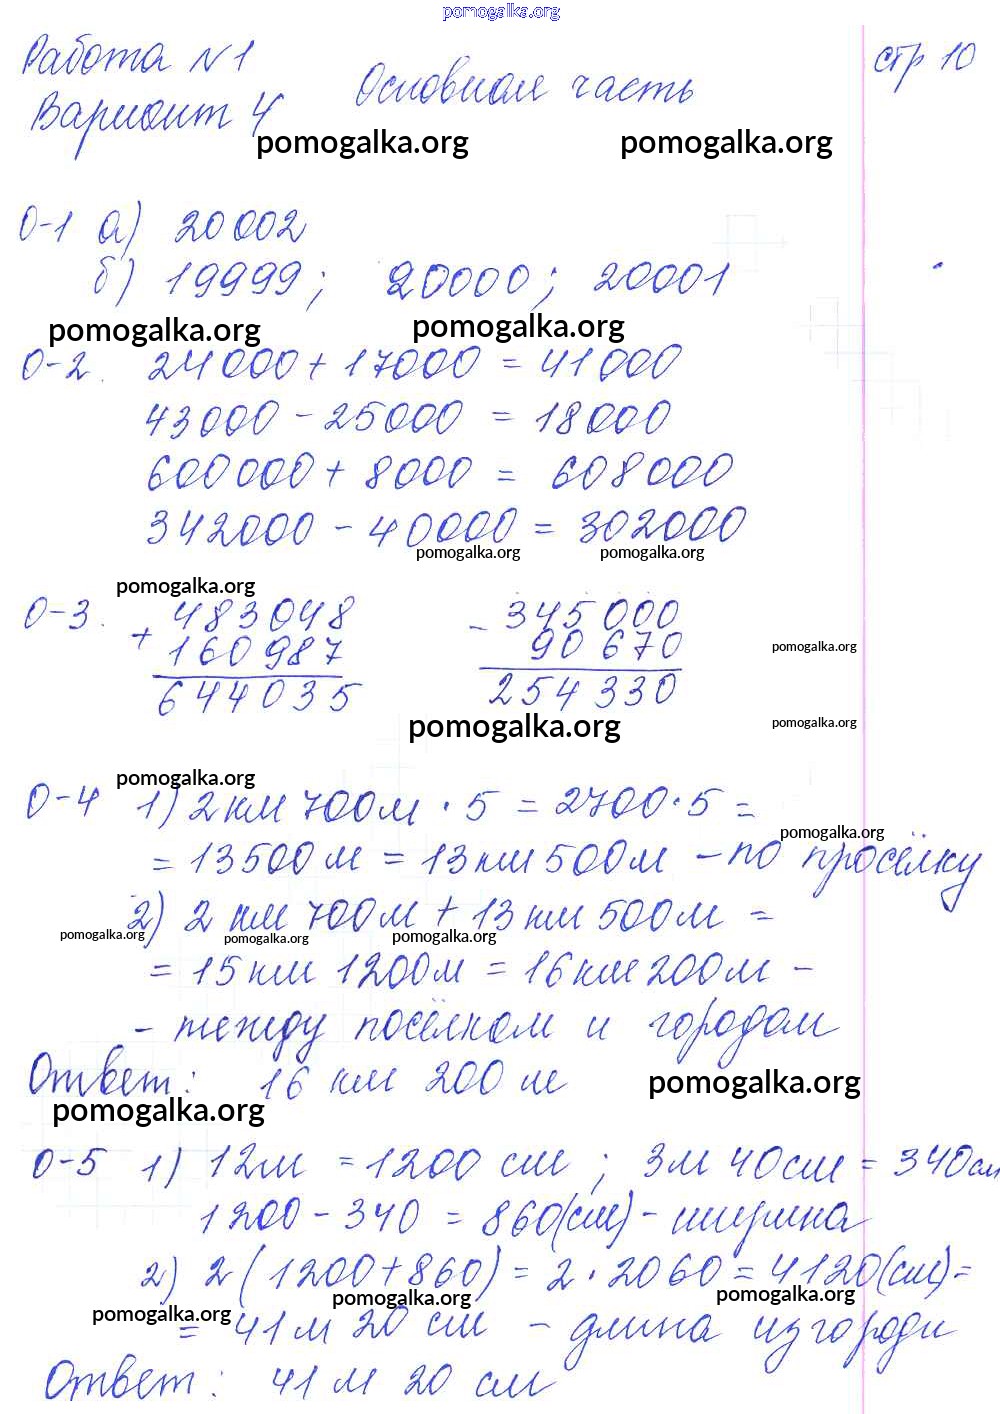 pomogalka.org
Работа №1
стр 10
Основная часть
Вариант 4
pomogalka.org pomogalka.org
О-1 а) 20002
б) 19999; 20000; 20001
pomogalka.org pomogalka.org
О-2. 24000 + 17000 = 41000
43000 - 25000 = 18000
600000 + 8000 = 608000
342000 - 40000 = 302000
pomogalka.org pomogalka.org
pomogalka.org
О-3. + 483048 - 345000
160987 90670
pomogalka.org
644035 254330
pomogalka.org pomogalka.org
pomogalka.org
О-4 1) 2 км 700 м · 5 = 2700 · 5 =
pomogalka.org
= 13500 м = 13 км 500 м - по просёлку
2) 2 км 700 м + 13 км 500 м =
pomogalka.org pomogalka.org pomogalka.org
= 15 км 1200 м = 16 км 200 м -
- между посёлком и городом
Ответ: 16 км 200 м
pomogalka.org
pomogalka.org
О-5 1) 12 м = 1200 см; 3 м 40 см = 340 см
1200 - 340 = 860 (см) - ширина
2) 2 (1200 + 860) = 2 · 2060 = 4120 (см) =
pomogalka.org pomogalka.org pomogalka.org
= 41 м 20 см - длина изгороди
Ответ: 41 м 20 см